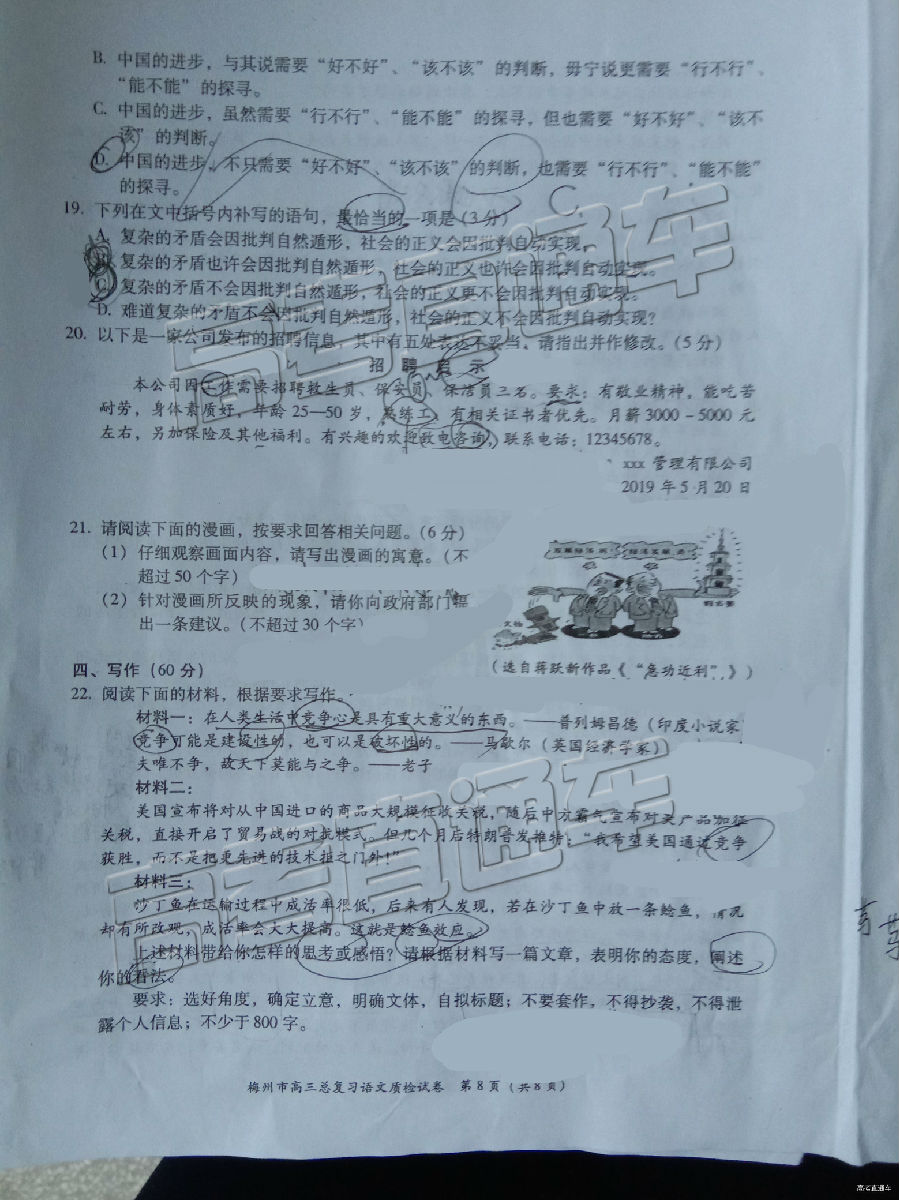 B. 中国的进步，与其说需要“好不好”、“该不该”的判断，毋宁说更需要“行不行”、
“能不能”的探寻。
C. 中国的进步，虽然需要“行不行”、“能不能”的探寻，但也需要“好不好”、“该不
该”的判断。
D. 中国的进步，不只需要“好不好”、“该不该”的判断，也需要“行不行”、“能不能”
的探寻。
C
19. 下列在文中括号内补写的语句，最恰当的一项是（3分）
A. 复杂的矛盾会因批判自然遁形，社会的正义会因批判自动实现。
B. 复杂的矛盾也许会因批判自然遁形，社会的正义也许会因批判自动实现。
C. 复杂的矛盾不会因批判自然遁形，社会的正义更不会因批判自动实现。
D. 难道复杂的矛盾不会因批判自然遁形，社会的正义不会因批判自动实现？
20. 以下是一家公司发布的招聘信息，其中有五处表达不妥当，请指出并作修改。（5分）
招 聘 启 示
本公司因工作需要招聘救生员、保安员、保洁员三名。要求：有敬业精神，能吃苦
耐劳，身体素质好，年龄25—50岁，熟练工，有相关证书者优先。月薪3000－5000元
左右，另加保险及其他福利。有兴趣的欢迎致电咨询，联系电话：12345678。
xxx 管理有限公司
2019年5月20日
21. 请阅读下面的漫画，按要求回答相关问题。（6分）
（1）仔细观察画面内容，请写出漫画的寓意。（不
超过50个字）
（2）针对漫画所反映的现象，请你向政府部门提
出一条建议。（不超过30个字）
文物
（选自蒋跃新作品《“急功近利”》）
四、写作（60分）
22. 阅读下面的材料，根据要求写作。
材料一：在人类生活中竞争心是具有重大意义的东西。——普列姆昌德（印度小说家
竞争可能是建设性的，也可以是破坏性的。——马歇尔（英国经济学家）
夫唯不争，故天下莫能与之争。——老子
材料二：
美国宣布将对从中国进口的商品大规模征收关税，随后中方霸气宣布对美产品加征
关税，直接开启了贸易战的对抗模式。但几个月后特朗普发推特：“我希望美国通过竞争
获胜，而不是把更先进的技术拒之门外！”
材料三：
沙丁鱼在运输过程中成活率很低，后来有人发现，若在沙丁鱼中放一条鲶鱼，情况
却有所改观，成活率会大大提高。这就是鲶鱼效应。
上述材料带给你怎样的思考或感悟？请根据材料写一篇文章，表明你的态度，阐述
你的看法。
要求：选好角度，确定立意，明确文体，自拟标题；不要套作，不得抄袭，不得泄
露个人信息；不少于800字。
梅州市高三总复习语文质检试卷 第8页（共8页）
高考直通车
高考直通车
高考直通车